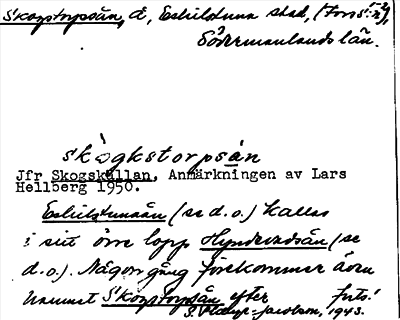 Skogstorpsån, å, Eskilstuna stad, (Fors s:n),
Södermanlands län.
skògkstorpsán
Jfr Skogskällan, Anmärkningen av Lars
Hellberg 1950.
Eskilstunaån (se d.o.) kallas
i sitt övre lopp Hyndevadsån (se
d.o.). Någon gång förekommer även
namnet Skogstorpsån efter forts.!
1943.